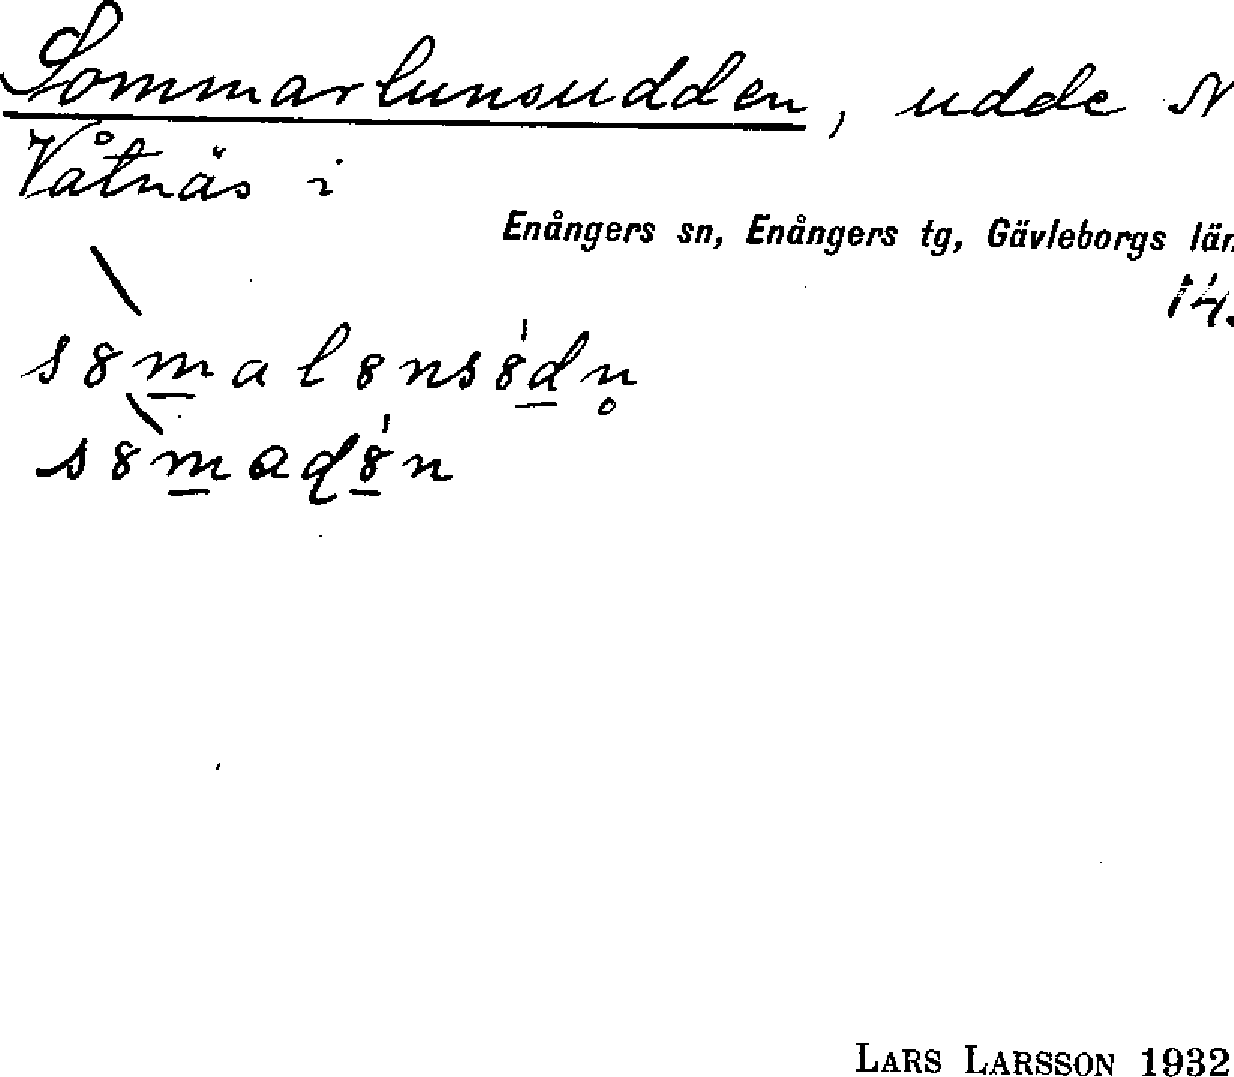 Sommarlunsudden, udde N
Våtnäs i
Enångers sn, Enångers tg, Gävleborgs län
14.
s8malensódn̥
s8madón
LARS LARSSON 1932